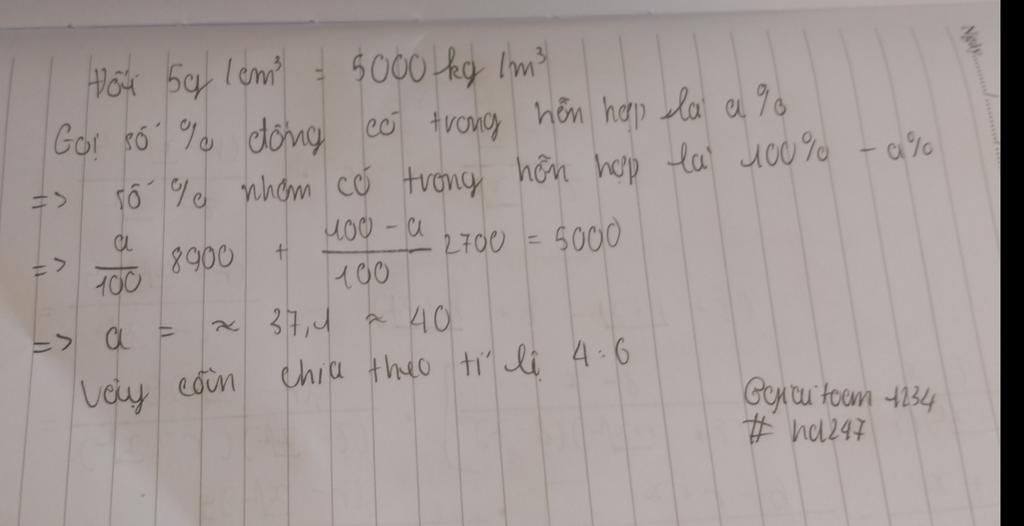 Đổi 5g/cm³ = 5000kg/m³
Gọi số % đồng có trong hỗn hợp là a%
=> số % nhôm có trong hỗn hợp là 100% - a%
=> a/100 8900 + 100 - a/100 2700 = 5000
=> a = ≈ 37,1 ≈ 40
Vậy cần chia theo tỉ lệ 4:6
@giaitoan 1234
# hd247